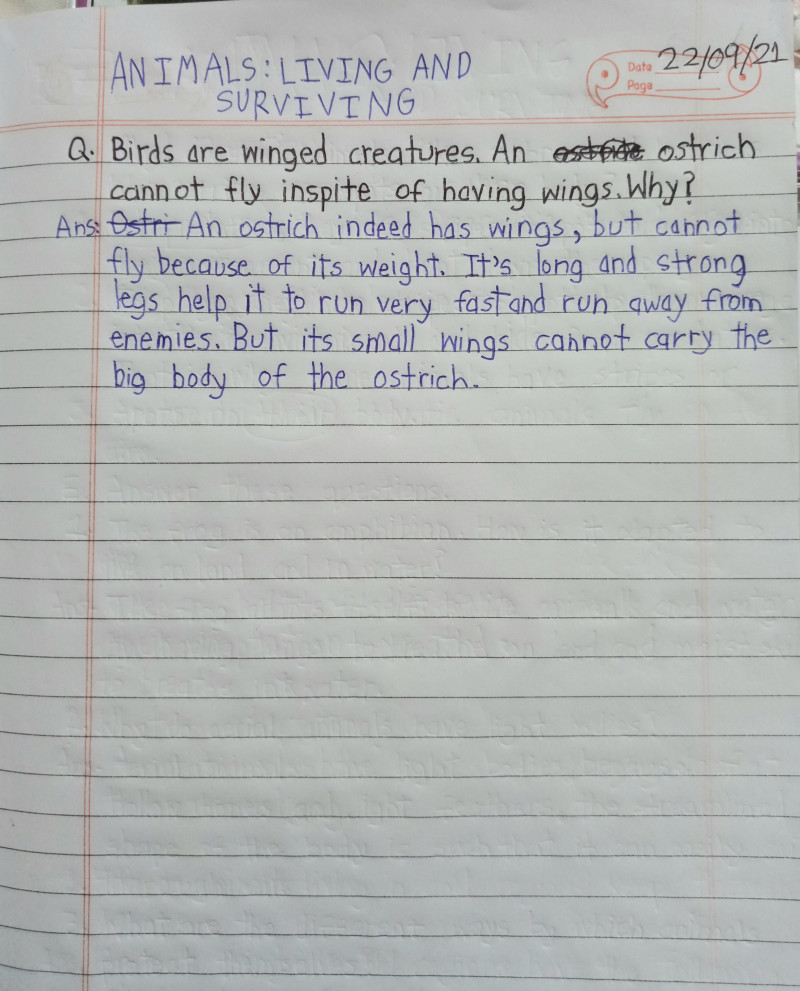 ANIMALS: LIVING AND
SURVIVING
Date 22/09/21
Page
Q. Birds are winged creatures. An ostrich
cannot fly inspite of having wings. Why?
Ans: Ostri An ostrich indeed has wings, but cannot
fly because of its weight. It's long and strong
legs help it to run very fast and run away from
enemies. But its small wings cannot carry the
big body of the ostrich.